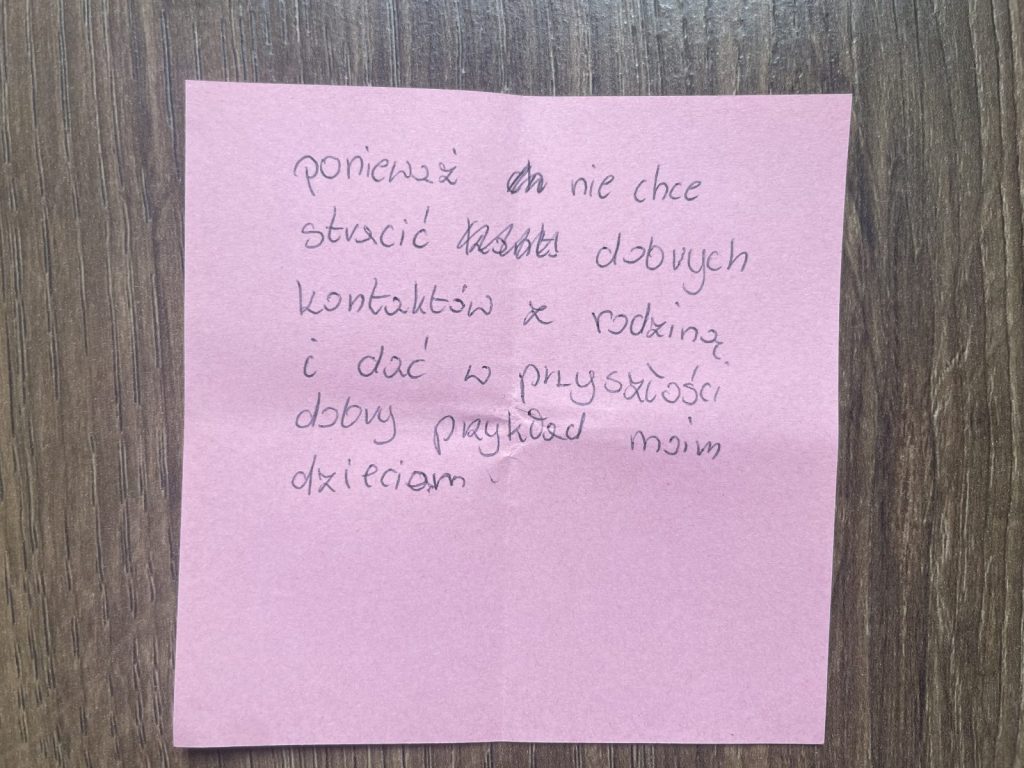 ponieważ nie chce
stracić dobrych
kontaktów z rodziną
i dać w przyszłości
dobry przykład moim
dzieciom